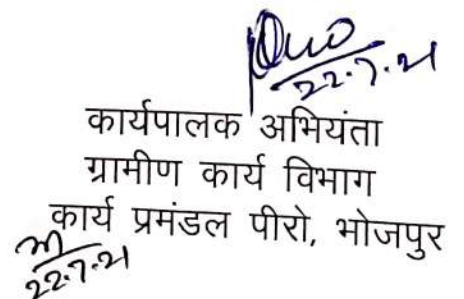 22.7.21
कार्यपालक अभियंता
ग्रामीण कार्य विभाग
कार्य प्रमंडल पीरो, भोजपुर
22.7.21